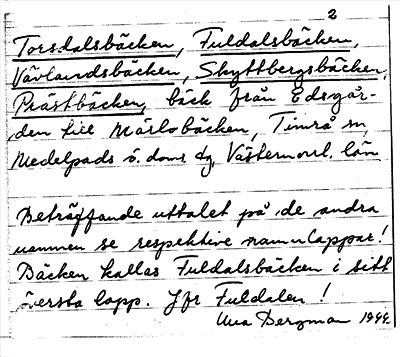 2
Torsdalsbäcken, Fuldalsbäcken,
Vävlandsbäcken, Skyttbergsbäcken,
Prästbäcken, bäck från Edsgår-
den till Märlobäcken, Timrå sn,
Medelpads ö. doms dg, Västernorrl. län
Beträffande uttalet på de andra
namnen se respektive namnlappar!
Bäcken kallas Fuldalsbäcken i sitt
översta lopp. Jfr Fuldalen!
Bergman 1944